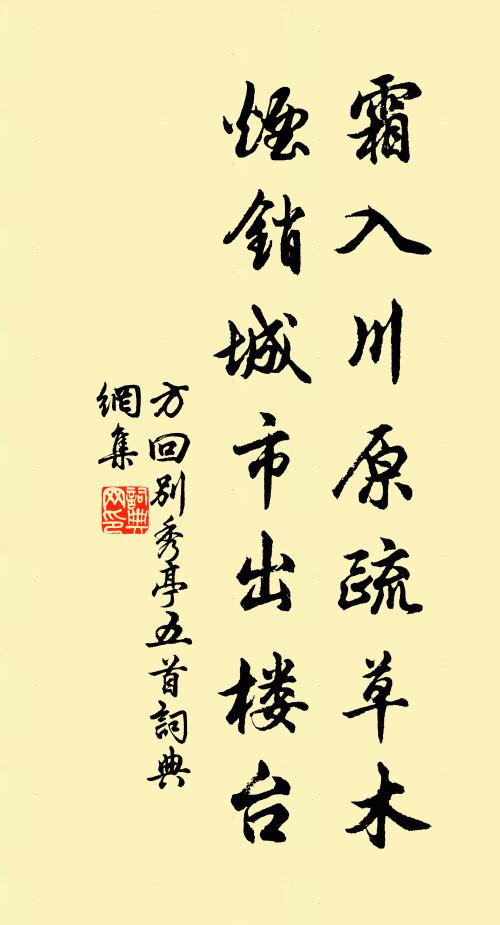 霜入川原疏草木
煙銷城市出楼台
方回别秀亭五首詞典
網集
詞典
网印